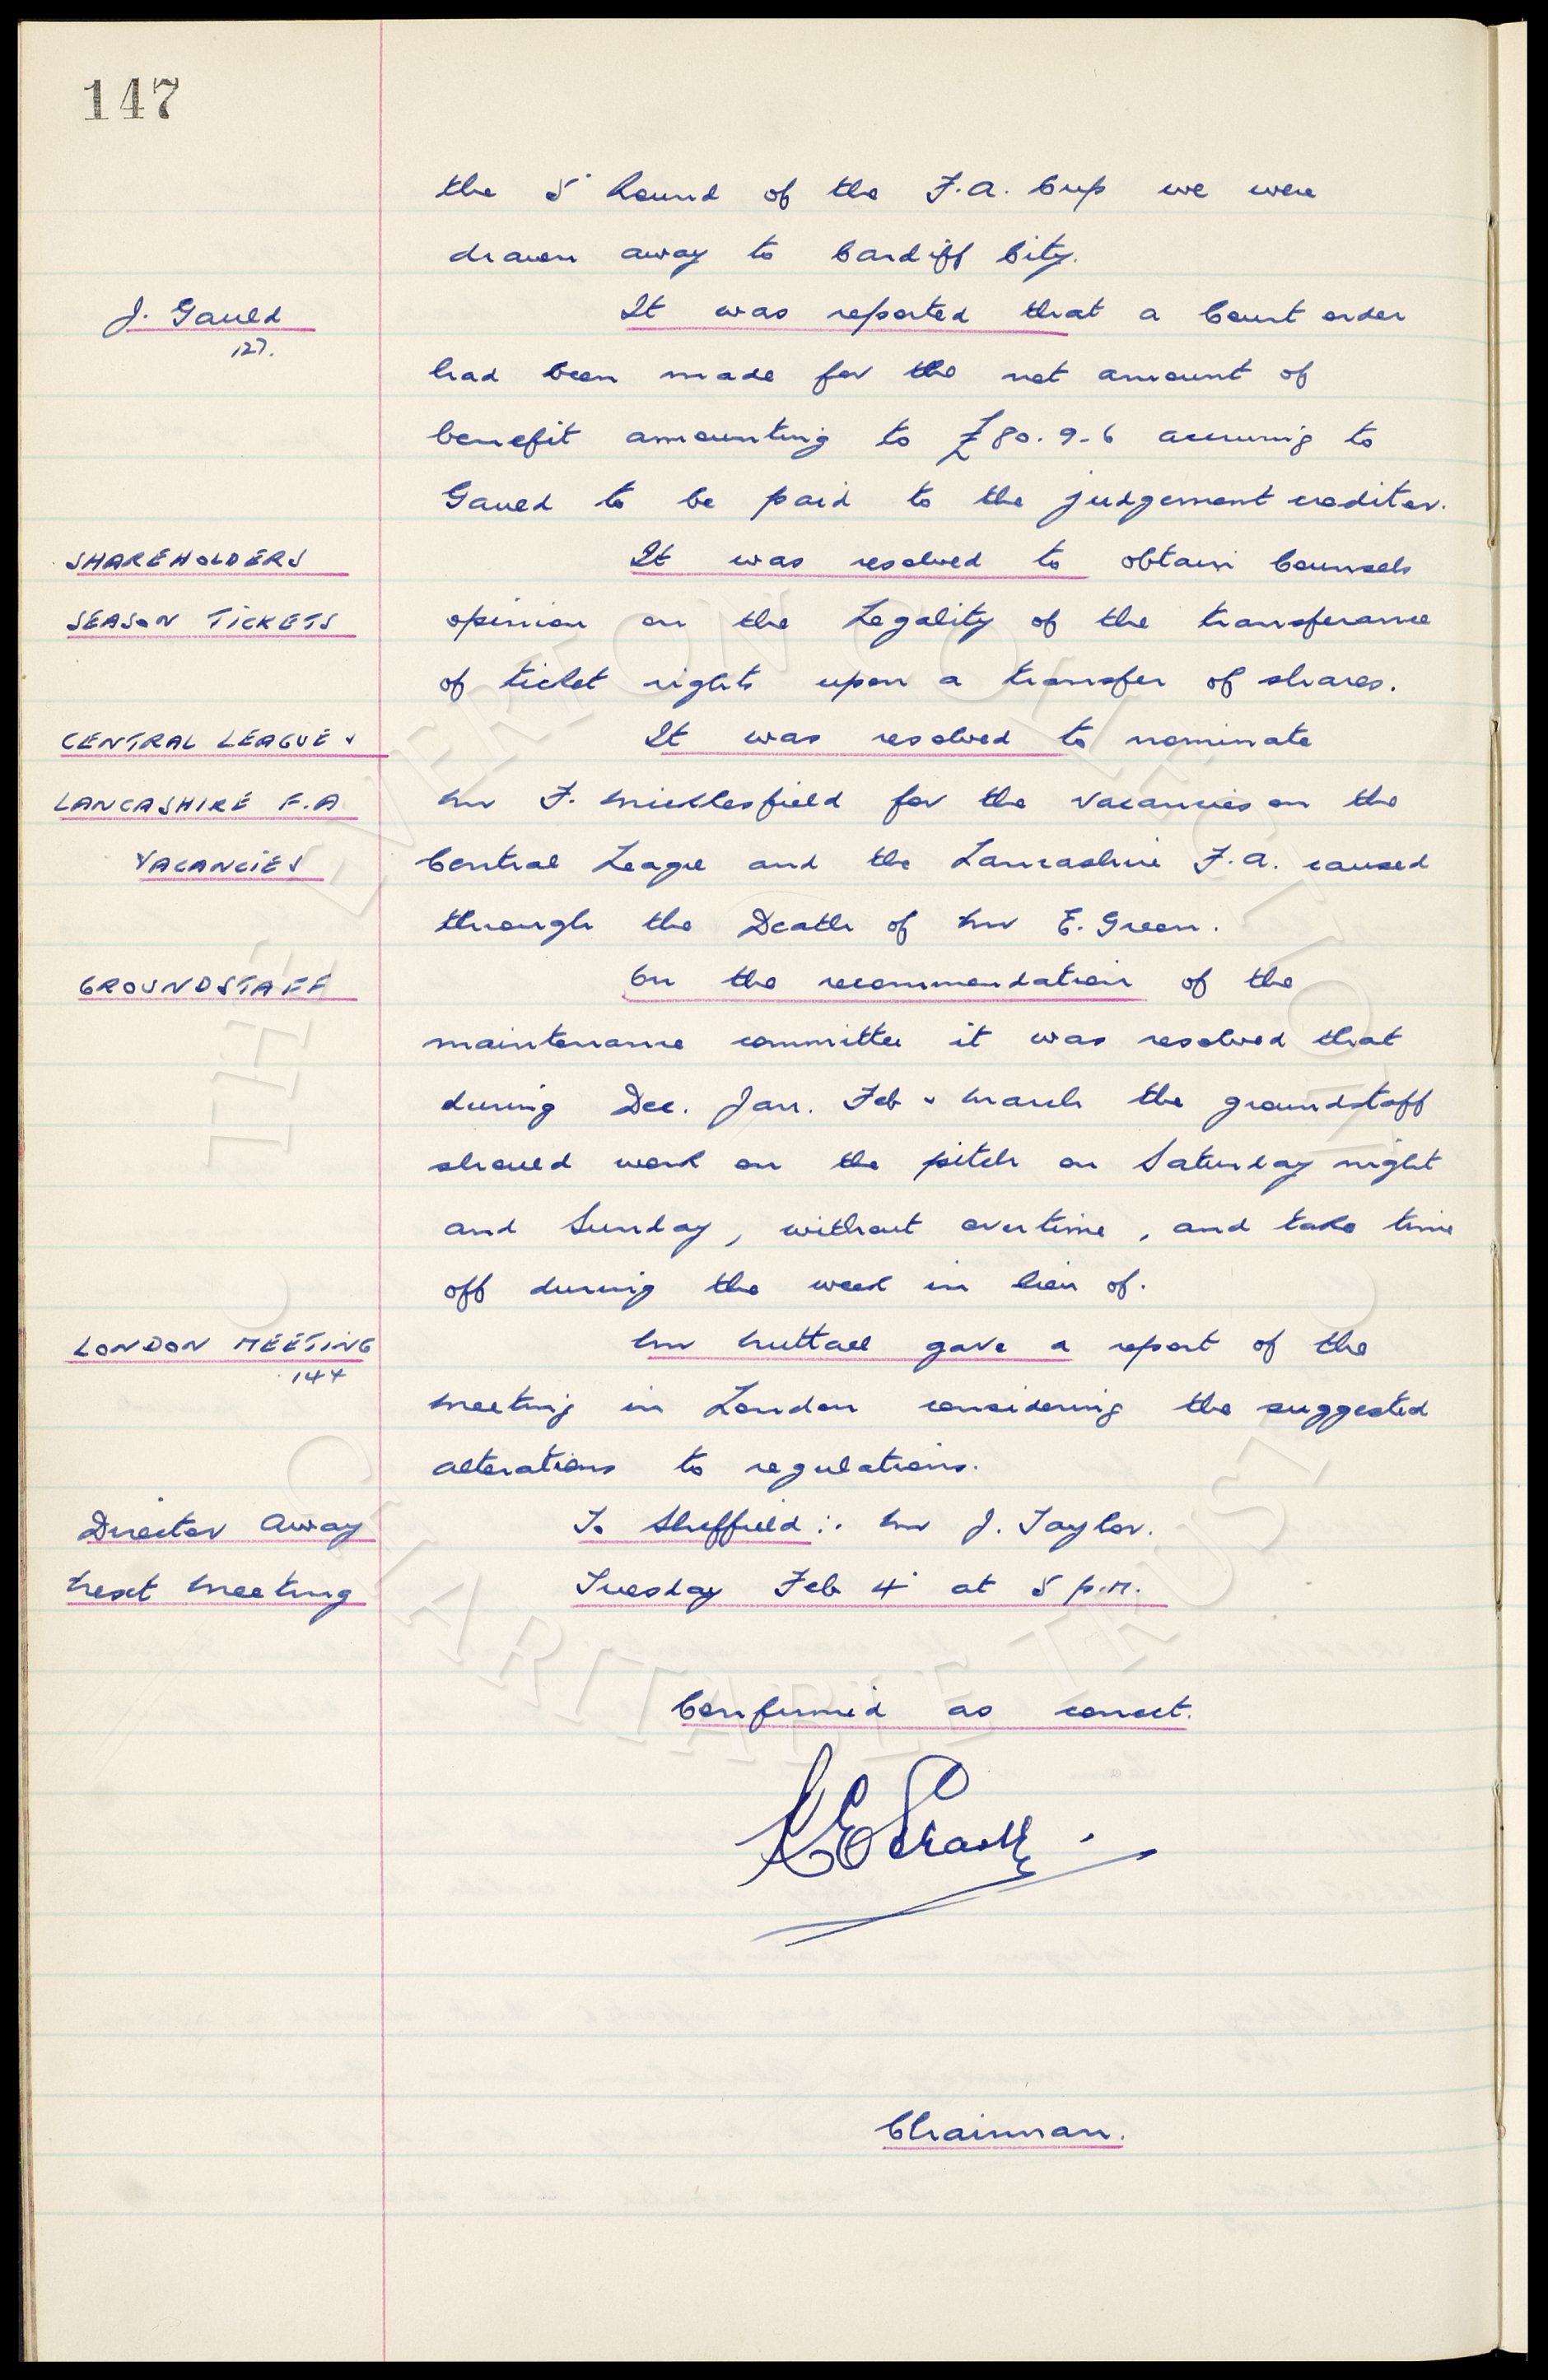 147
the 5' Round of the F.A. Cup we were
drawn away to Cardiff City.
J. Gauld It was reported that a Court order
127.
had been made for the net amount of
benefit amounting to £80.9.6 accruing to
Gauld to be paid to the judgement creditor.
SHAREHOLDERS It was resolved to obtain Counsels
SEASON TICKETS opinion on the Legality of the transferance
of ticket rights upon a transfer of shares.
CENTRAL LEAGUE & It was resolved to nominate
LANCASHIRE F.A Mr F. Micklesfield for the vacancies on the
VACANCIES Central League and the Lancashire F.A. caused
through the Death of Mr E. Green.
GROUNDSTAFF On the recommendation of the
maintenance committee it was resolved that
during Dec. Jan. Feb & March the groundstaff
should work on the pitch on Saturday night
and Sunday, without overtime, and take time
off during the week in lieu of.
LONDON MEETING Mr Nuttall gave a report of the
144
meeting in London considering the suggested
alterations to regulations.
Director Away To Sheffield :. Mr J. Taylor.
Next Meeting Tuesday Feb 4' at 5 p.m.
Confirmed as correct.
Chairman.
THE EVERTON COLLECTION
CHARITABLE TRUST